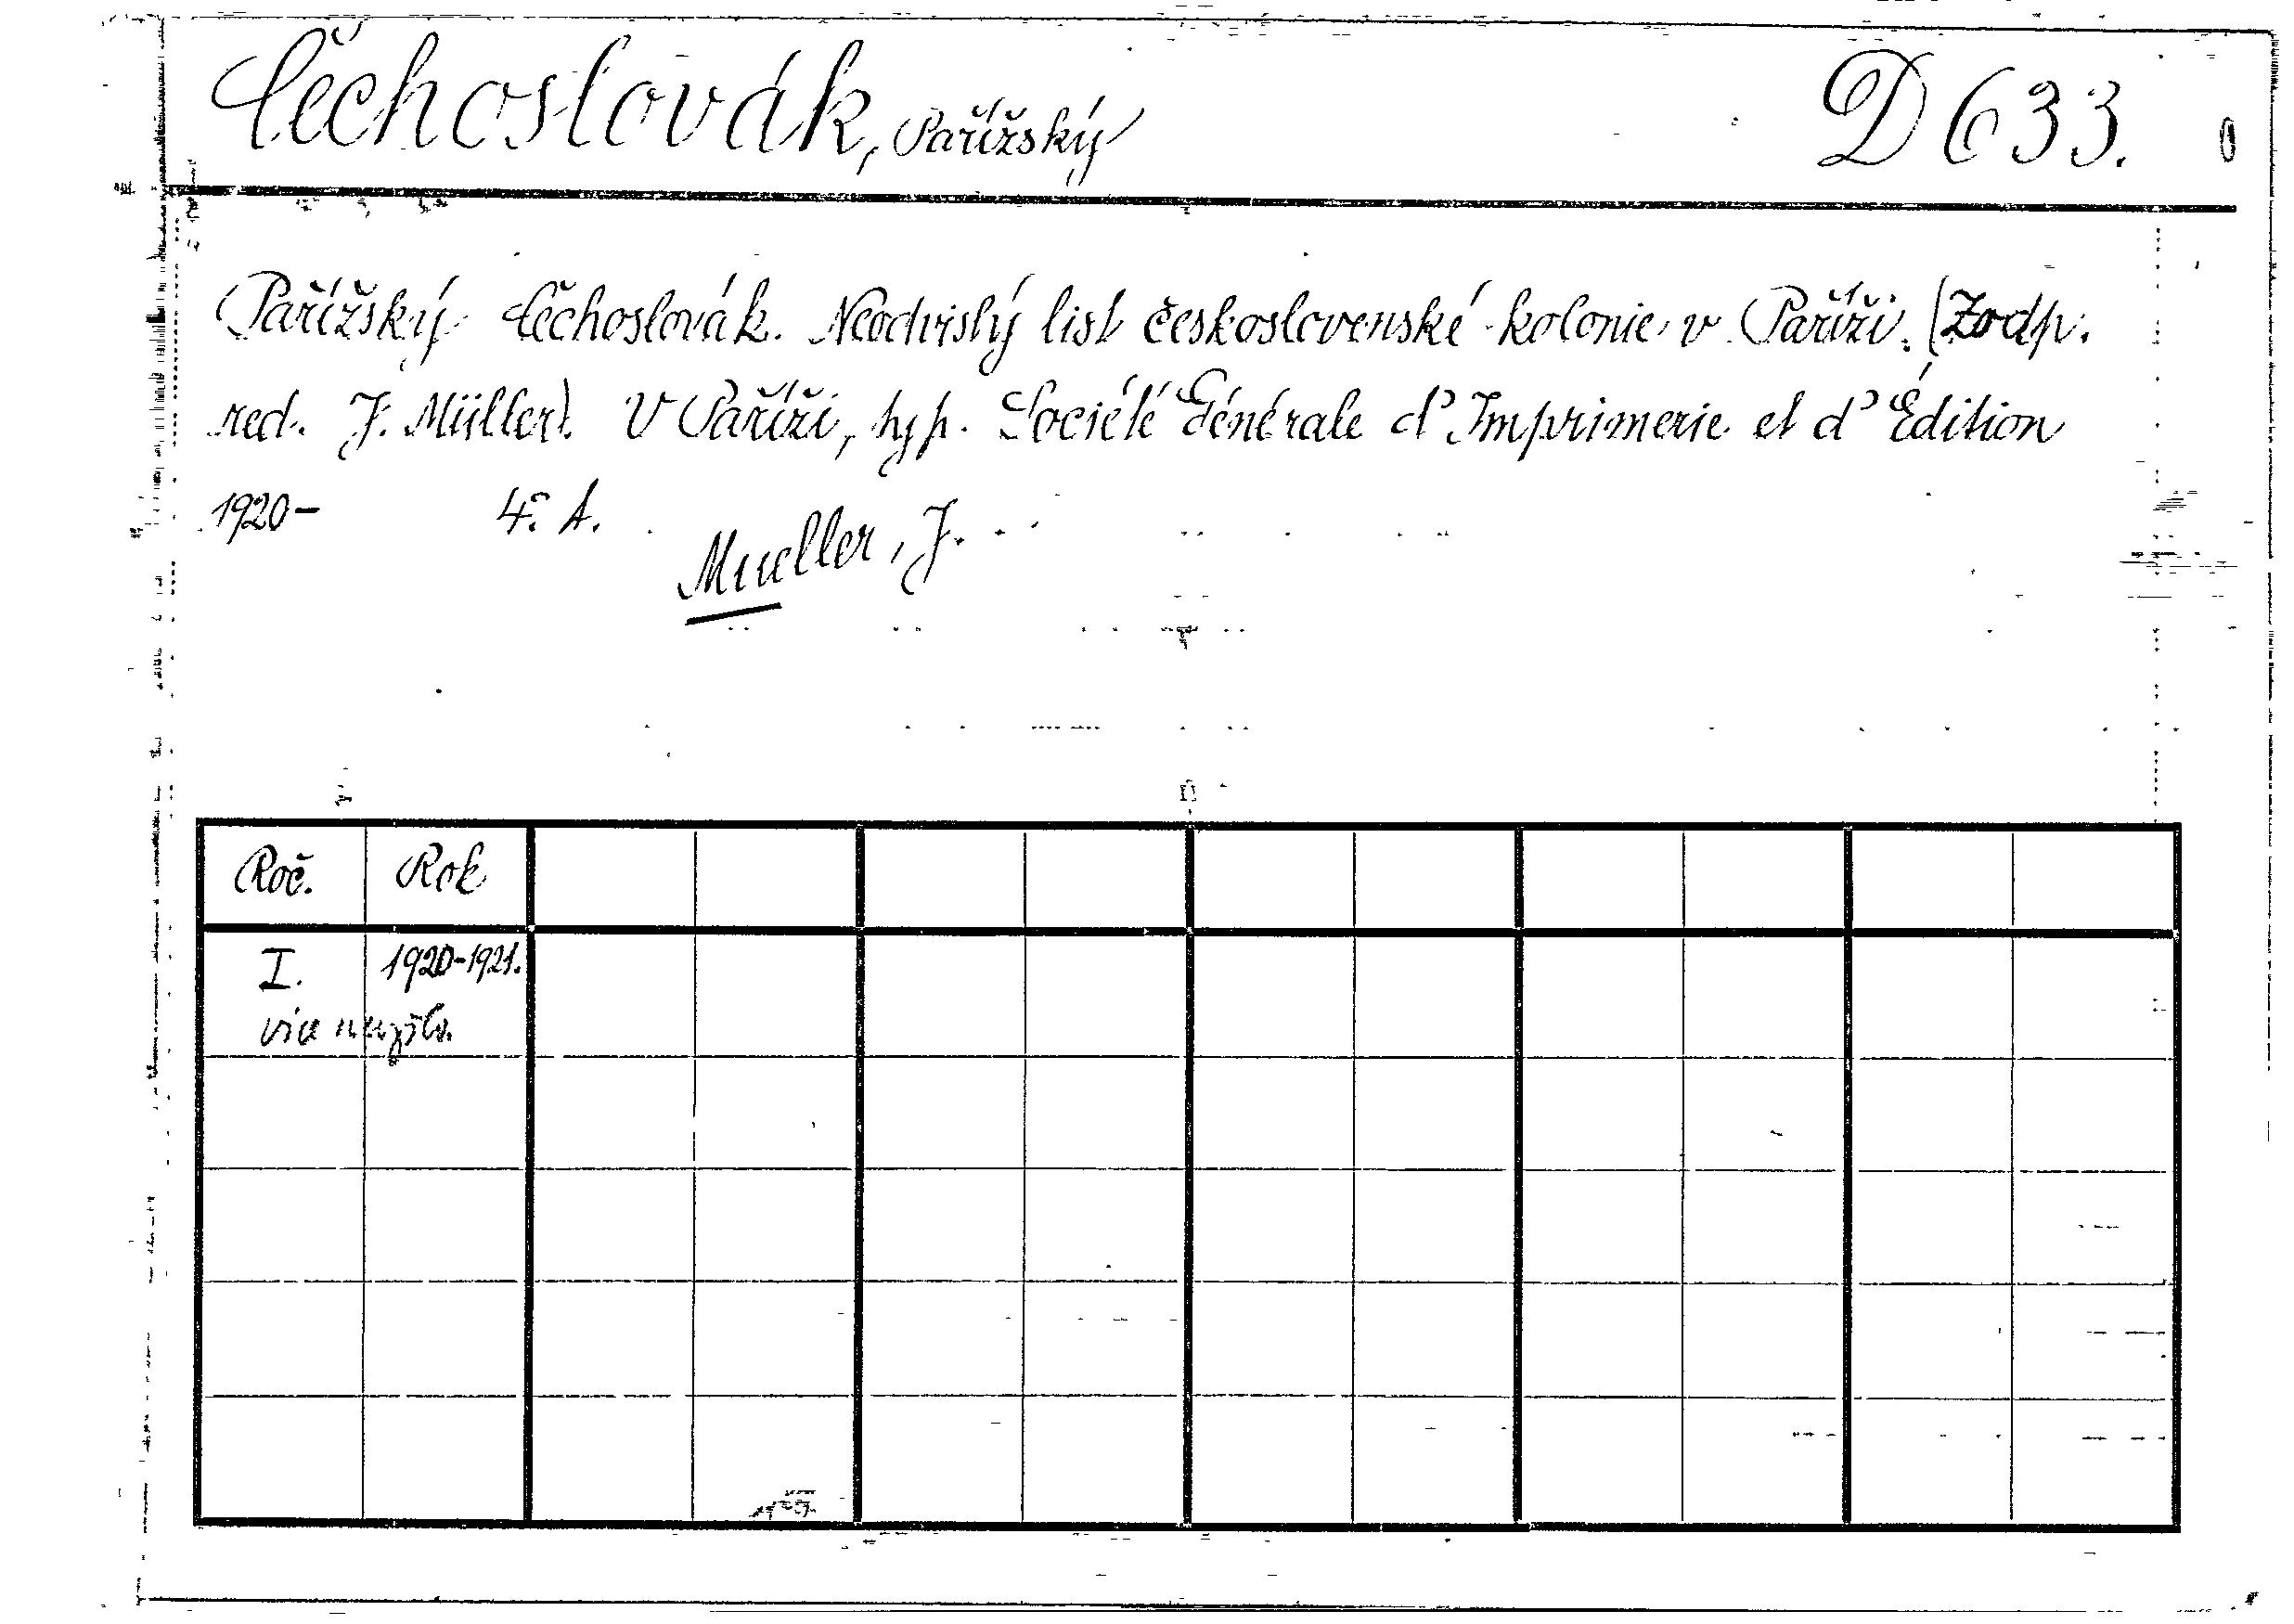 Čechoslovák, Pařížský D 633.
Pařížský Čechoslovák. Neodvislý list československé kolonie v Paříži. (Zodp.
red. J. Müller). V Paříži, typ. Société Générale d'Imprimerie et d'Édition
1920– 4°. A.
Mueller, J.
Roč. Rok
I. 1920-1921.
více nevyšlo.